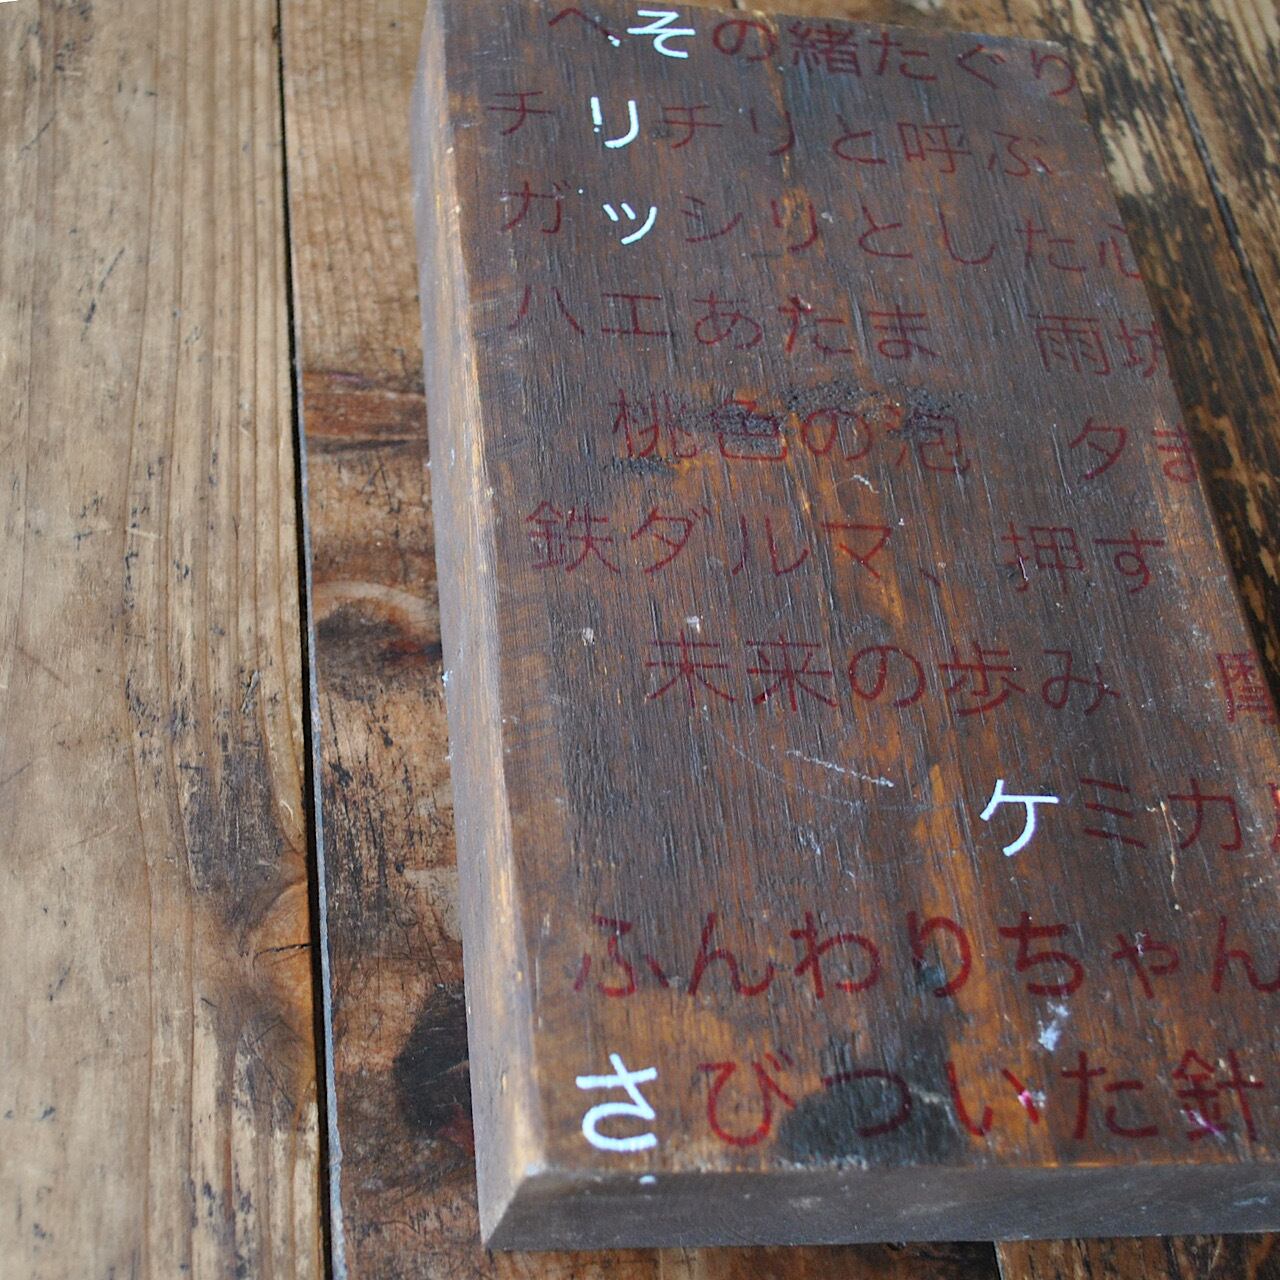 へその緒たぐり
チリチリと呼ぶ
ガッシリとした心
ハエあたま 雨
桃色の泡 夕ま
鉄ダルマ、押す
未来の歩み
ケミカ
ふんわりちゃん
さびついた針